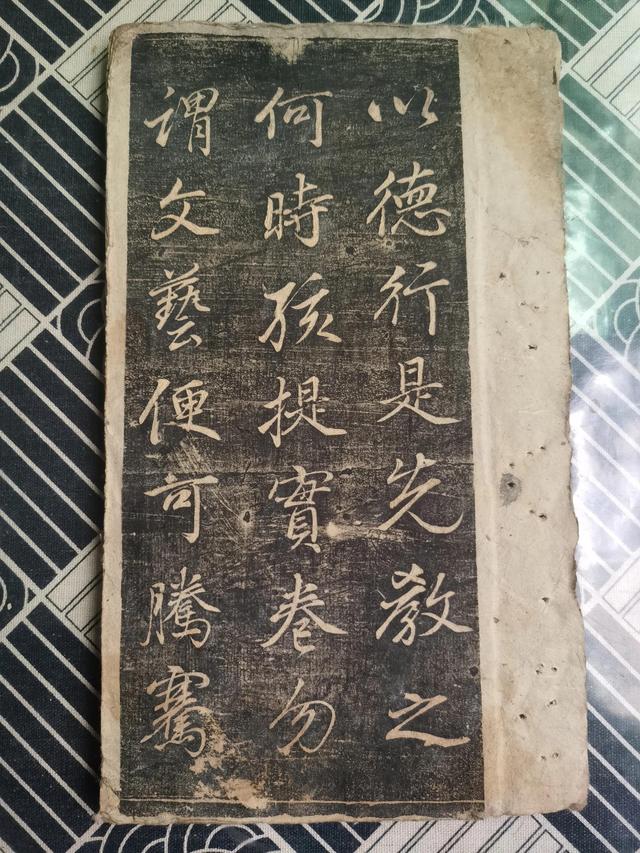 以德行是先教之
何時孩提實卷勿
謂文藝便可騰騫